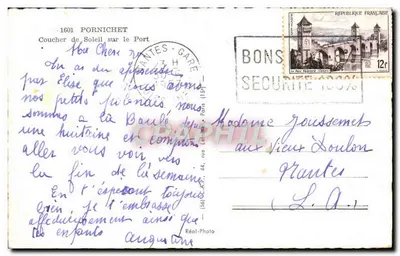 1601 PORNICHET
Coucher de Soleil sur le Port
NANTES - GARE
BONS
SÉCURITÉ 100%
RÉPUBLIQUE FRANÇAISE
12F
Ma Chère
tu as du apprendre
par Elise que nous avons
nos petits nous
sommes à La Baule depuis
une huitaine et comptons
aller vous voir vers
la fin de la semaine
En t'espérant toujours
bien, je t'embrasse
affectueusement ainsi que
les enfants
Augustine
Madame Joussemet
au vieux Doulon
Nantes
(L. A.)
Réal-Photo
CPAPHIL